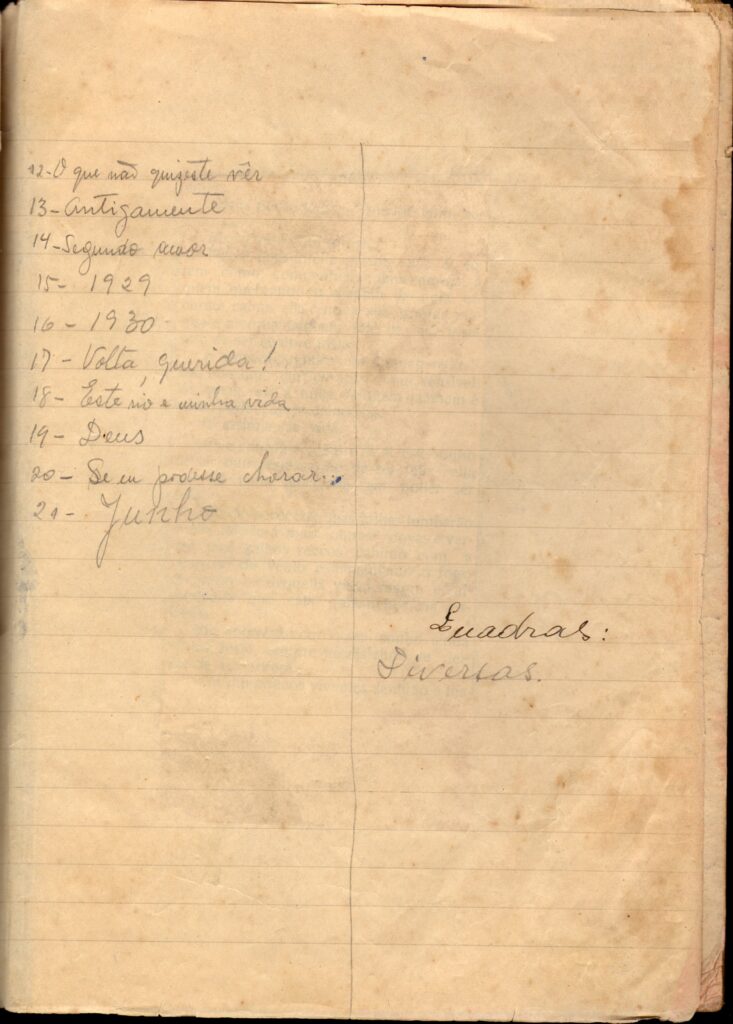 12-O que não quizeste vêr
13-Antigamente
14-Segundo amor
15- 1929
16- 1930
17- Volta, querida!
18- Este rio e minha vida
19- Deus
20- Se eu podesse chorar...
21- Junho
Quadras:
Diversas.